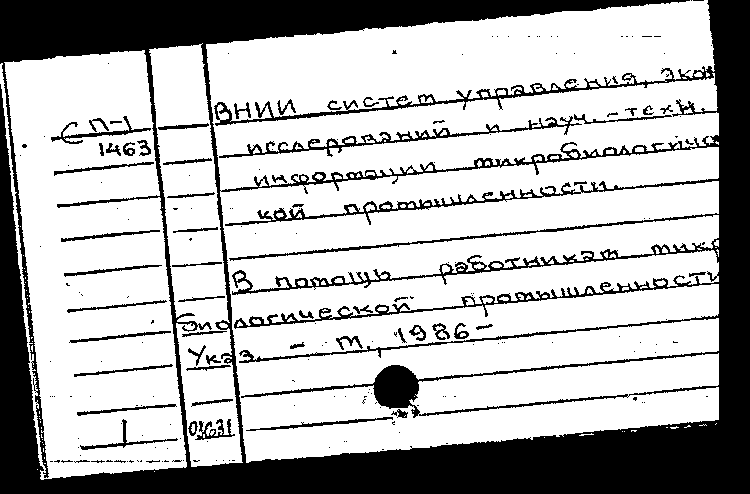 ВНИИ систем управления, экон
СП-1
исследований и науч.-техн.
1463
информации микробиологичес
кой промышленности.
В помощь работникам микр
биологической промышленности
Указ. - М., 1986-
1